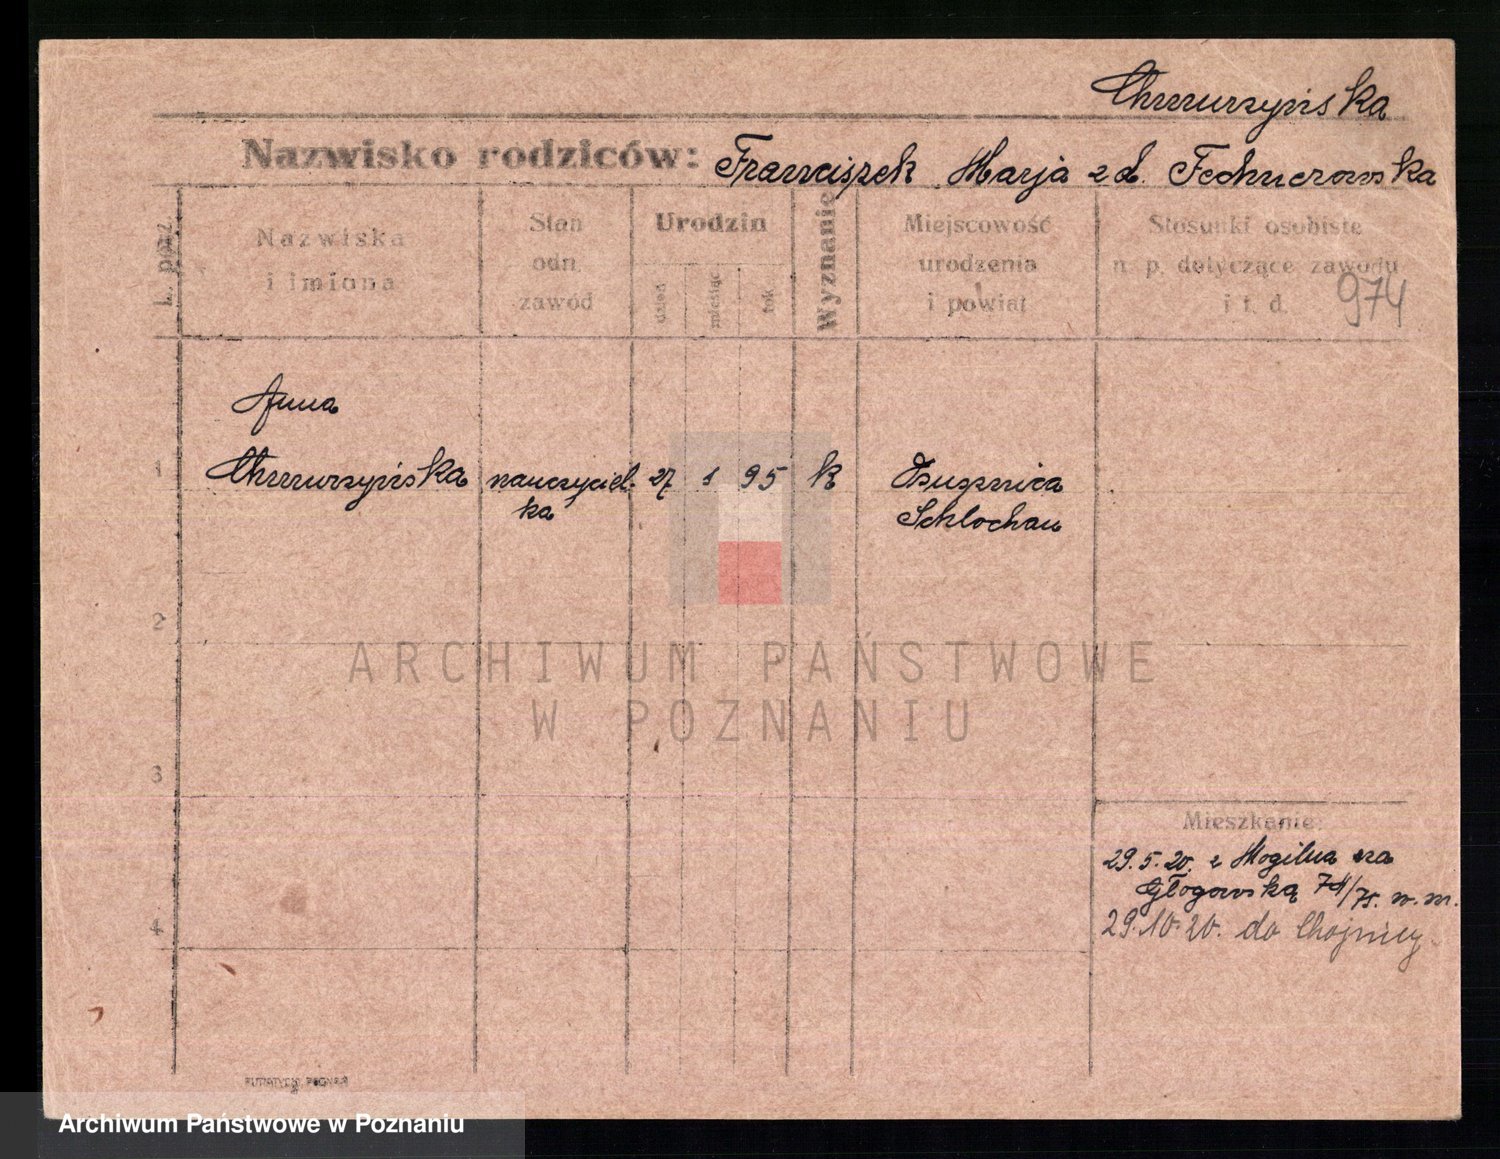 Chmurzyńska
Nazwisko rodziców: Franciszek Marja z d.
L. porz.
Nazwiska
i imiona
Stan
odn.
zawód
Urodzin
dzień
miesiąc
rok
Wyznanie
Miejscowość
urodzenia
i powiat
Stosunki osobiste
n. p. dotyczące zawodu
i t. d. 974
Anna
1 Chmurzyńska nauczyciel- 27 1 95 k
ka Schlochau
2
ARCHIWUM PAŃSTWOWE
W POZNANIU
3
Mieszkanie:
29.5.20. z Mogilna na
Głogowską 74/75. w. m.
29.10.20. do Chojnicy
4
Archiwum Państwowe w Poznaniu